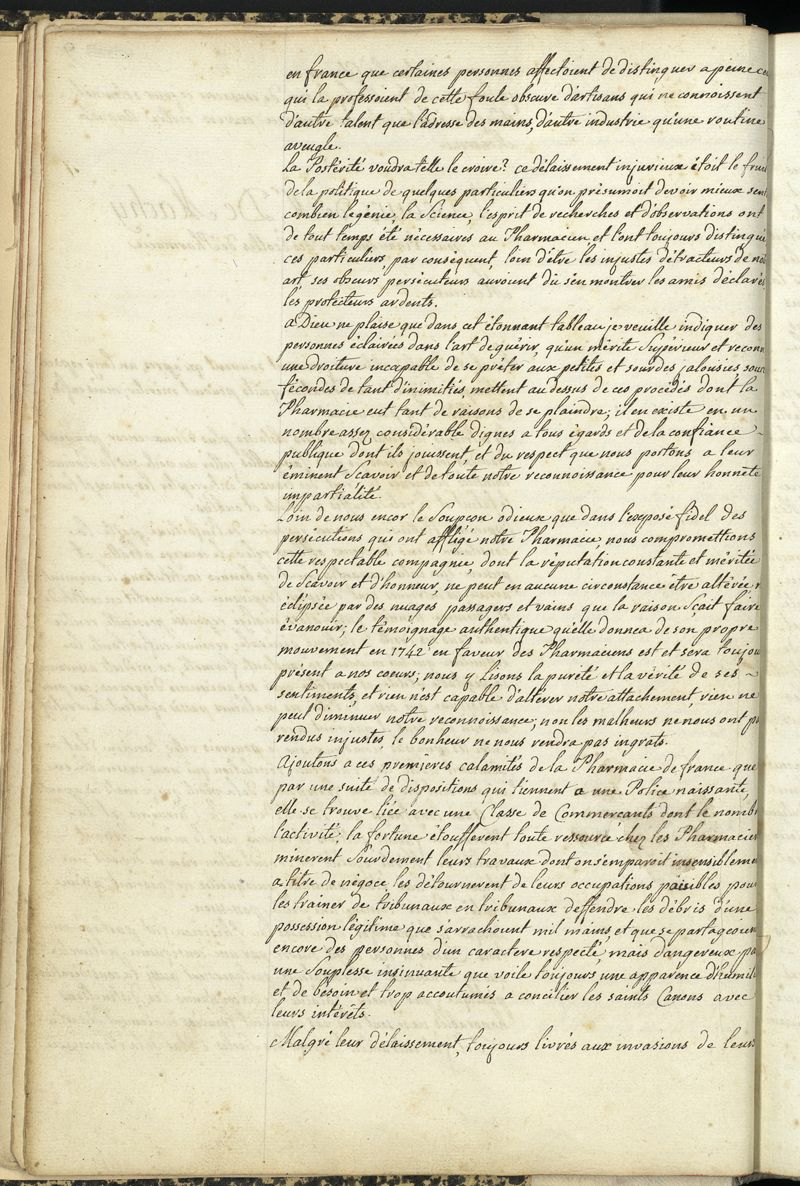 en france que certaines personnes affectoient de distinguer a peine ce
qui la professoient de cette foule obscure d'artisans qui ne connoissent
d'autre talent que l'adresse des mains, d'autre industrie qu'une routine
aveugle.
La Postérité voudra telle le croire? ce délaissement injurieux étoit le frui
de la politique de quelques particuliers qu'on présumoit devoir mieux sen
combien le génie, la Science, l'esprit de recherches et d'observations ont
de tout temps été nécessaires au Pharmacien et l'ont toujours distingué
ces particuliers par conséquent, loin d'être les injustes détracteurs de not
art, ses obscurs persécuteurs auroient du s'en montrer les amis déclarés
les protecteurs ardents.
a Dieu ne plaise que dans cet étonnant tableau je veuille indiquer des
personnes éclairées dans l'art de guérir, qu'un mérite Supérieur et reconn
une droiture incapable de se prêter aux petites et sourdes jalousies sour
fécondes de tant d'inimitiés, mettent au dessus de ces procédés dont la
Pharmacie eut tant de raisons de se plaindre; il en existe en un
nombre assez considérable dignes a tous égards et de la confiance
publique dont ils jouissent et du respect que nous portons a leur
éminent Scavoir et de toute notre reconnoissance pour leur honnête
impartialité.
Loin de nous encor le Soupçon odieux que dans l'exposé fidel des
persécutions que ont affligé notre Pharmacie, nous compromettions
cette respectable compagnie, dont la réputation constante et méritée
de Scavoir et d'honneur, ne peut en aucune circonstance être altérée, n
éclipsée par des nuages passagers et vains que la raison Sçait faire
évanouir; le témoignage authentique qu'elle donnea de son propre
mouvement en 1742 en faveur des Pharmaciens est et sera toujou
présent a nos coeurs; nous y lisons la pureté et la vérité de ses
sentiments, et rien n'est capable d'altérer notre attachement, rien ne
peut diminuer notre reconnoissance; non les malheurs ne nous ont p
rendus injustes, le bonheur ne nous rendra pas ingrats.
Ajoutons a ces premieres calamités de la Pharmacie de france que
par une suite de dispositions qui tiennent a une Police naissante,
elle se trouve liée avec une Classe de Commercants dont le nomb
l'activité, la fortune étoufferent toute ressource chez les Pharmacie
minerent Sourdement leurs travaux dont on s'emparoit insensibleme
a titre de négoce, les détournerent de leurs occupations paisibles pou
les trainer de tribunaux en tribunaux deffendre les débris d'une
possession légitime que s'arrachoient mil mains, et que se partageoien
encore des personnes d'un caractere respecté, mais dangereux pa
une Souplesse insinuante que voile toujours une apparence d'humili
et de besoin et trop accoutumés a concilier les saints Canons avec
leurs intérêts.
Malgré leur délaissement, toujours livrés aux invasions de leurs